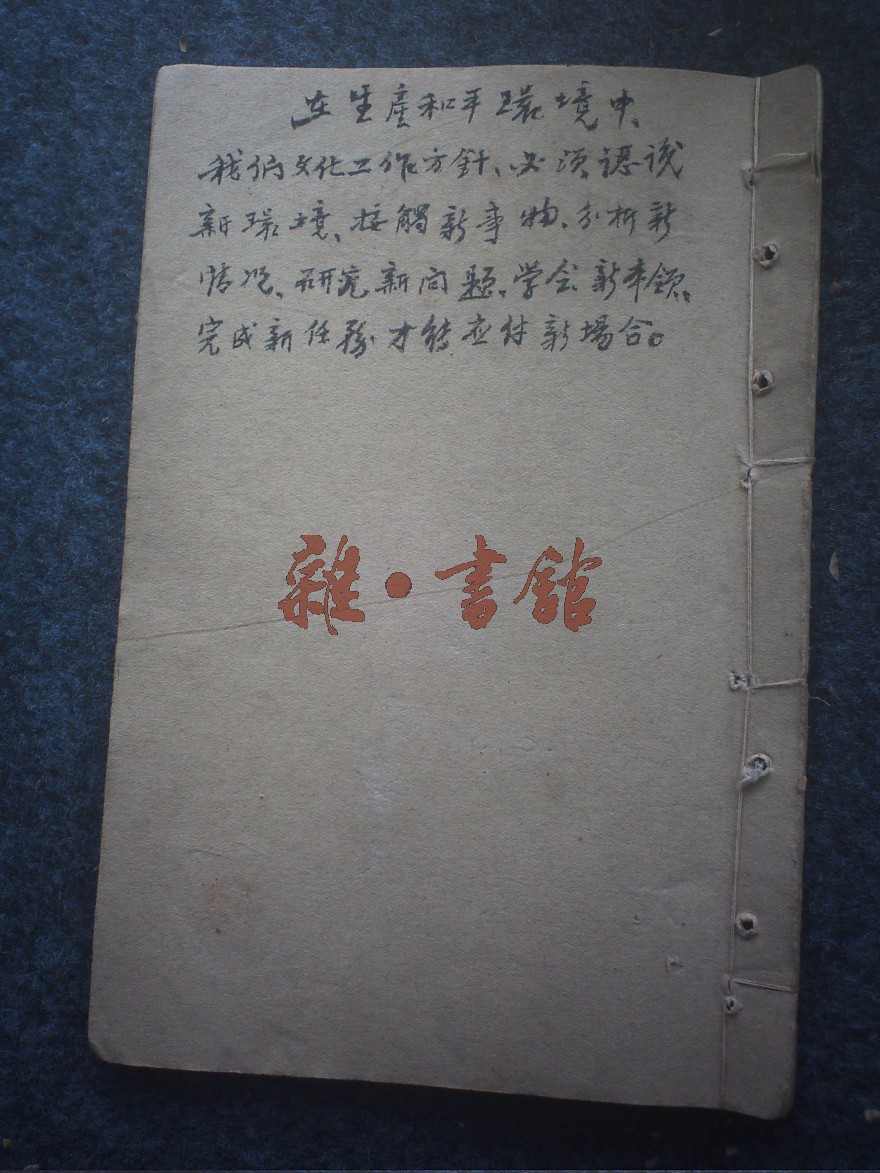 在生產和平環境中、
我们文化工作方針、必须認识
新環境、接觸新事物、分析新
情况、研究新问题、学会新本领、
完成新任務才能应付新場合。
雜·書館